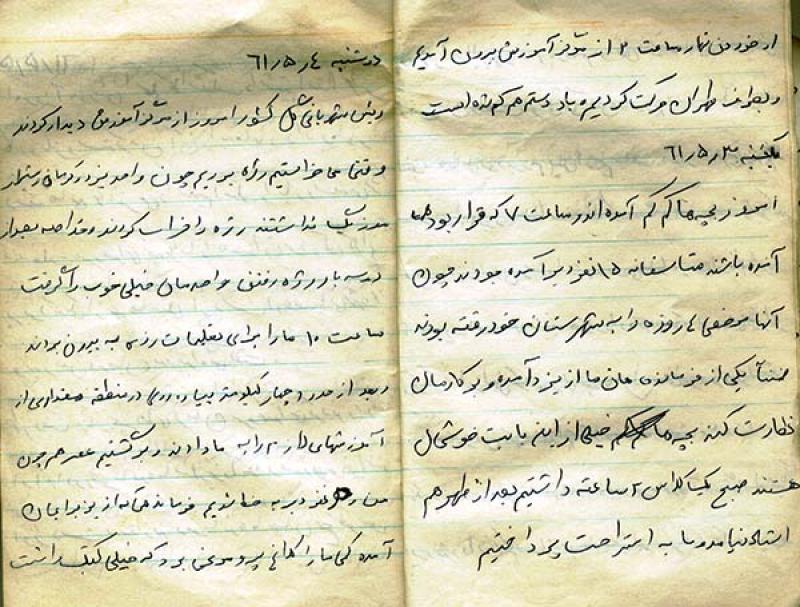 از خوردن نهار ساعت ۲ از مرکز آموزش بیرون آمدیم
و بطرف طهران حرکت کردیم یاد دستم هم کم شده است
یکشنبه ۳ ر ۵ ر ۶۱
امروز بچه‌ها کم کم آمده‌اند و ساعت ۷ که قرار بود همه
آمده باشند متاسفانه ۱۵ نفر دیر آمده بودند چون
آنها مرخصی ۴ روزه را به شهرستان خود رفته بودند
ضمناً یکی از فرمانده‌هان ما از یزد آمده و بر کارمان
نظارت کند بچه‌ها خیلی از این بابت خوشحال
هستند صبح یک کلاس ۲ ساعته داشتیم بعد از ظهر هم
استاد نیامد و ما به استراحت پرداختیم
دوشنبه ۴ ر ۵ ر ۶۱
رئیس شهربانی کل کشور امروز از مرکز آموزش دیدار کردند
وقتی ما خواستیم رژه برویم چون واحد یزد و کرمان
نداشتند رژه را خراب کردند و خدا بعد از
سه بار رژه رفتن واحدمان خیلی خوب رژه گرفت
ساعت ۱۰ ما را برای تعلیمات رزم به بیرون بردند
و بعد از حدود چهار کیلومتر پیاده‌روی در منطقه مقداری از
آموزشهای لازم را به ما دادند و برگشتیم عصر هم چون
من و نفر دیر به خط شدیم فرمانده که از یزد برایمان
آمده کمی ما را کلاغ پر و مرغی برد که خیلی کیف داشت